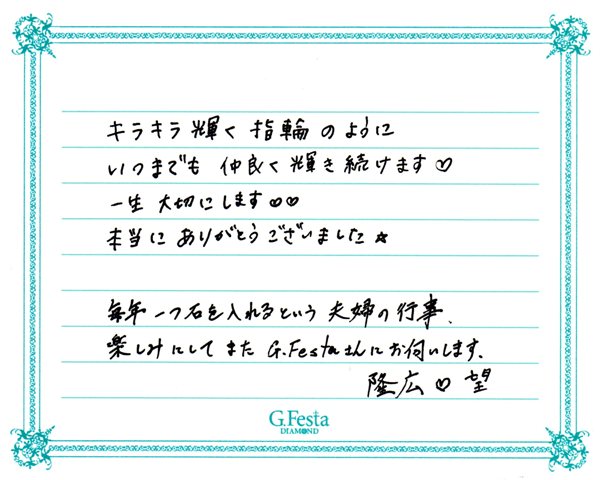 キラキラ輝く指輪のように
いつまでも仲良く輝き続けます♡
一生大切にします♡♡
本当にありがとうございました☆
毎年一つ石を入れるという夫婦の行事、
楽しみにしてまたG.Festaさんにお伺いします。
隆広♡望
G.Festa
DIAMOND